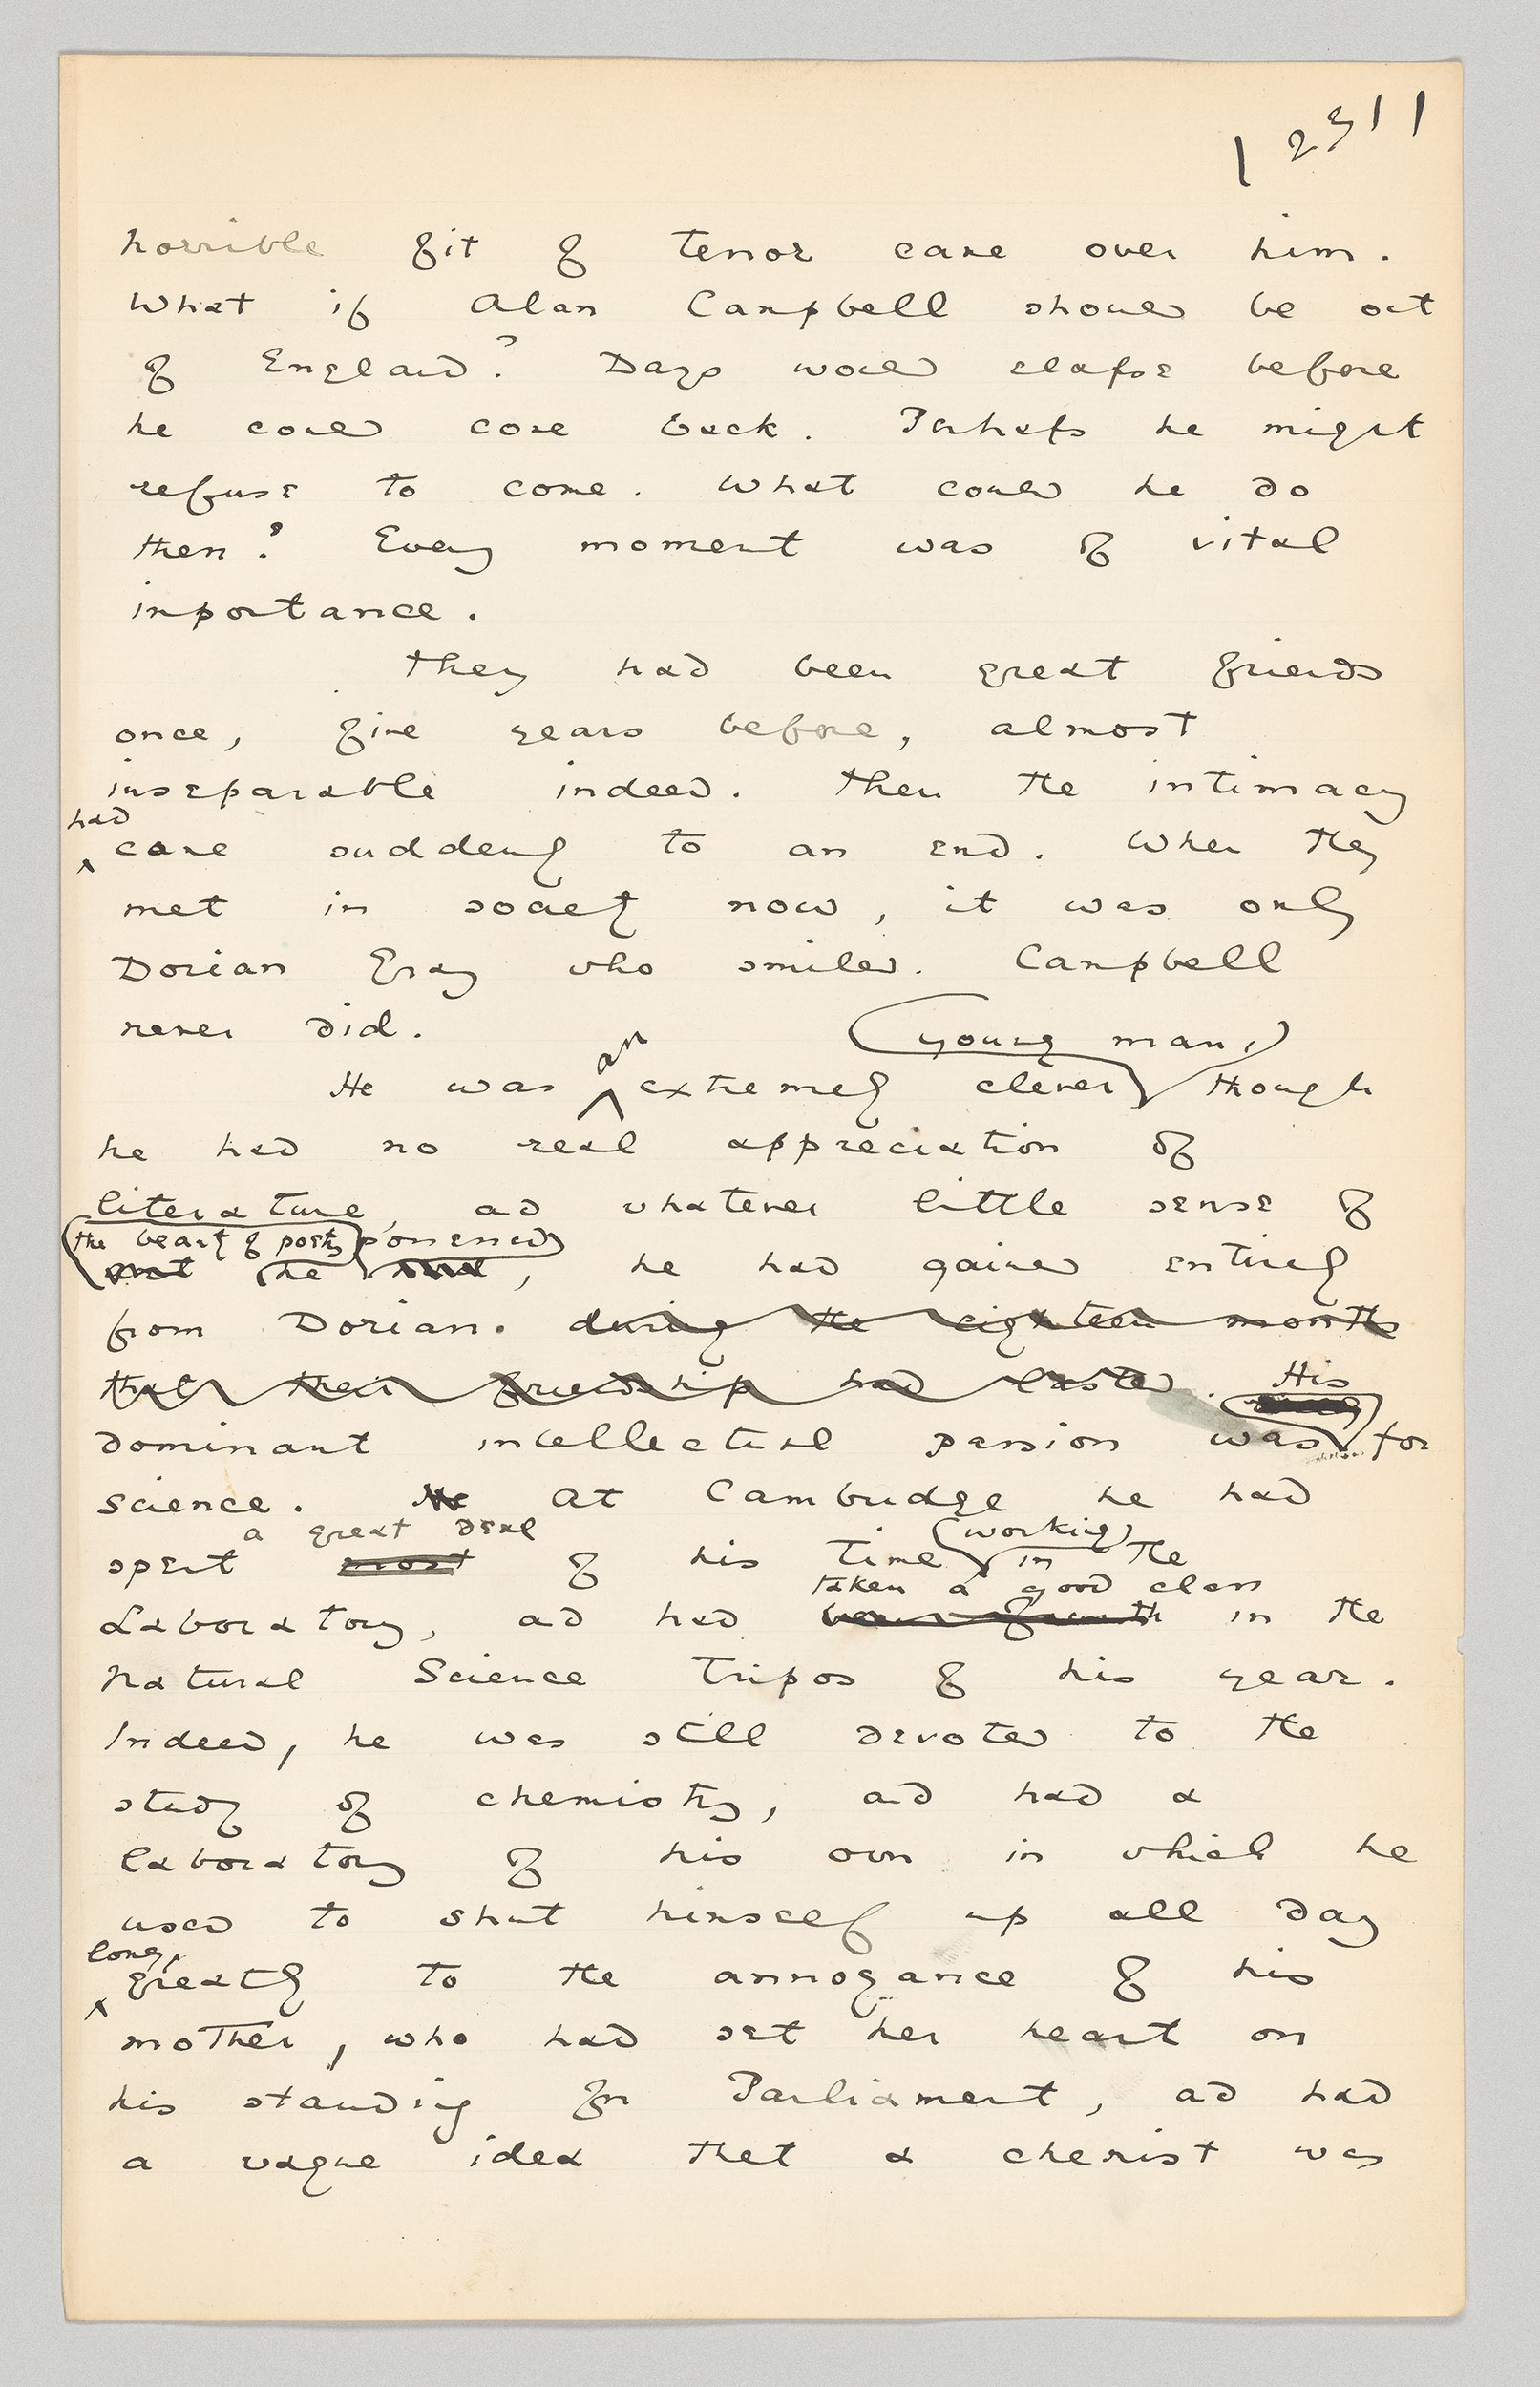 12311
horrible fit of terror came over him.
What if Alan Campbell should be out
of England? Days would elapse before
he could come back. Perhaps he might
refuse to come. What could he do
then? Every moment was of vital
importance.
They had been great friends
once, five years before, almost
inseparable indeed. Then the intimacy
had
came suddenly to an end. When they
met in society now, it was only
Dorian Gray who smiled. Campbell
never did.
young man,
He was an extremely clever though
he had no real appreciation of
literature, and whatever little sense of
the beauty of poetry possessed
he, he had gained entirely
from Dorian. during the eighteen months
that their friendship had lasted. His
dominant intellectual passion was for
science. He At Cambridge he had
a great deal working
spent most of his time in the
taken a good class
Laboratory, and had been fourth in the
Natural Science Tripos of his year.
Indeed, he was still devoted to the
study of chemistry, and had a
laboratory of his own in which he
used to shut himself up all day
long,
greatly to the annoyance of his
mother, who had set her heart on
his standing for Parliament, and had
a vague idea that a chemist was